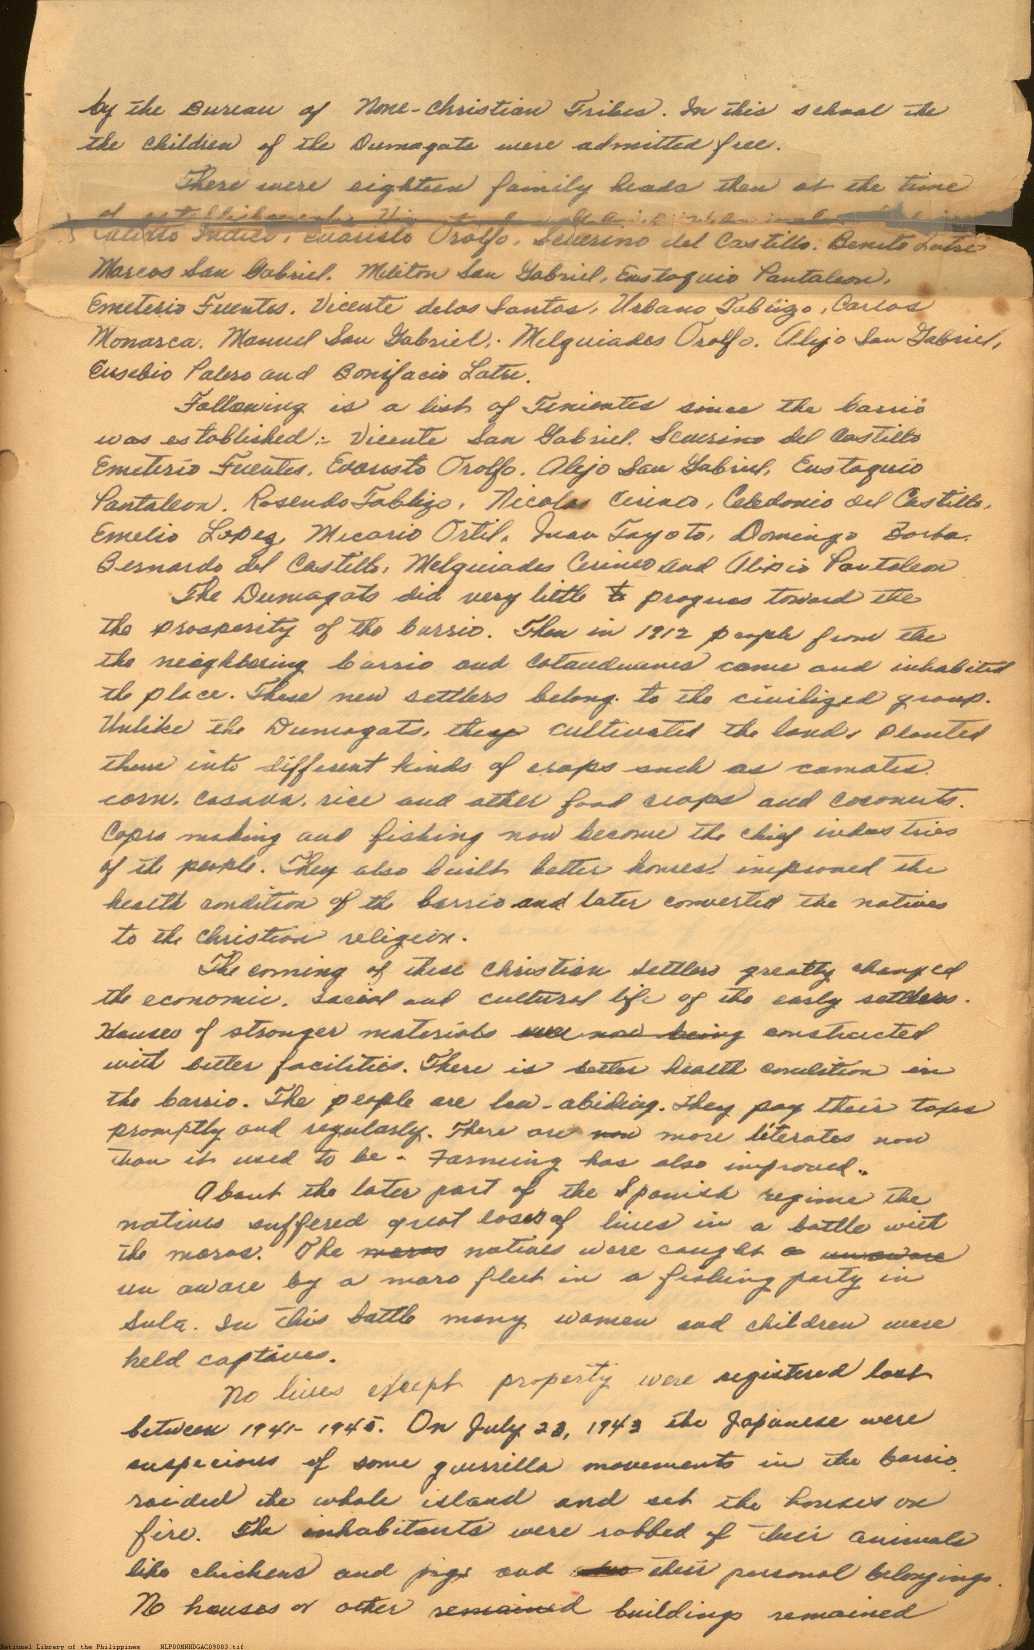 by the Bureau of None-Christian Tribes. In this school the
the children of the Dumagate were admitted free.
There were eighteen family heads then at the time
of establishment.
Indici, Evaristo Orolfo, Severino del Castillo. Benito Latre
Marcos San Gabriel. Meliton San Gabriel, Eustaquio Pantaleon,
Emeterio Fuentes. Vicente delos Santos, Urbano Tabüzo, Carlos
Monarca. Manuel San Gabriel, Melguiades Orolfo. Alejo San Gabriel,
Eusebio Palero and Bonifacio Latre.
Following is a list of Tenientes since the barrio
was established:- Vicente San Gabriel. Severino del Castillo
Emeterio Fuentes. Evaristo Orolfo. Alejo San Gabriel, Eustaquio
Pantaleon. Rosendo Tabligo, Nicolas Cirineo, Celedonio del Castillo,
Emelio Lopez, Micario Ortil, Juan Tayoto, Domingo Borba.
Bernardo del Castillo, Melguiades Cirineo and Alipio Pantaleon
The Dumagats did very little to progress toward the
the prosperity of the barrio. Then in 1912 people from the
the neighboring barrio and Catanduanes came and inhabited
the place. These new settlers belong to the civilized group.
Unlike the Dumagats, they cultivated the lands planted
them into different kinds of crops such as camates
corn, casava, rice and other food crops and coconuts.
Copra making and fishing now become the chief industries
of the people. They also built better homes, improved the
health condition of the barrio and later converted the natives
to the Christian religion.
The coming of these Christian settlers greatly changed
the economic, social and cultural life of the early settlers.
Houses of stronger materials were now being constructed
with better facilities. There is better health condition in
the barrio. The people are law-abiding. They pay their taxes
promptly and regularly. There are now more literates now
than it used to be. Farming has also improved.
About the later part of the Spanish regime the
natives suffered great loses of lives in a battle with
the moros. The moros natives were caught a unaware
un aware by a moro fleet in a fishing party in
Sula. In this battle many women and children were
held captives.
No lives except property were registered lost
between 1941-1945. On July 23, 1943 the Japanese were
suspecious of some guerrilla movements in the barrio.
raided the whole island and set the houses on
fire. The inhabitants were robbed of their animals
like chickens and pigs and their personal belongings.
No houses or other remained buildings remained
National Library of the Philippines NLPOOMNHDGAC09003.tif